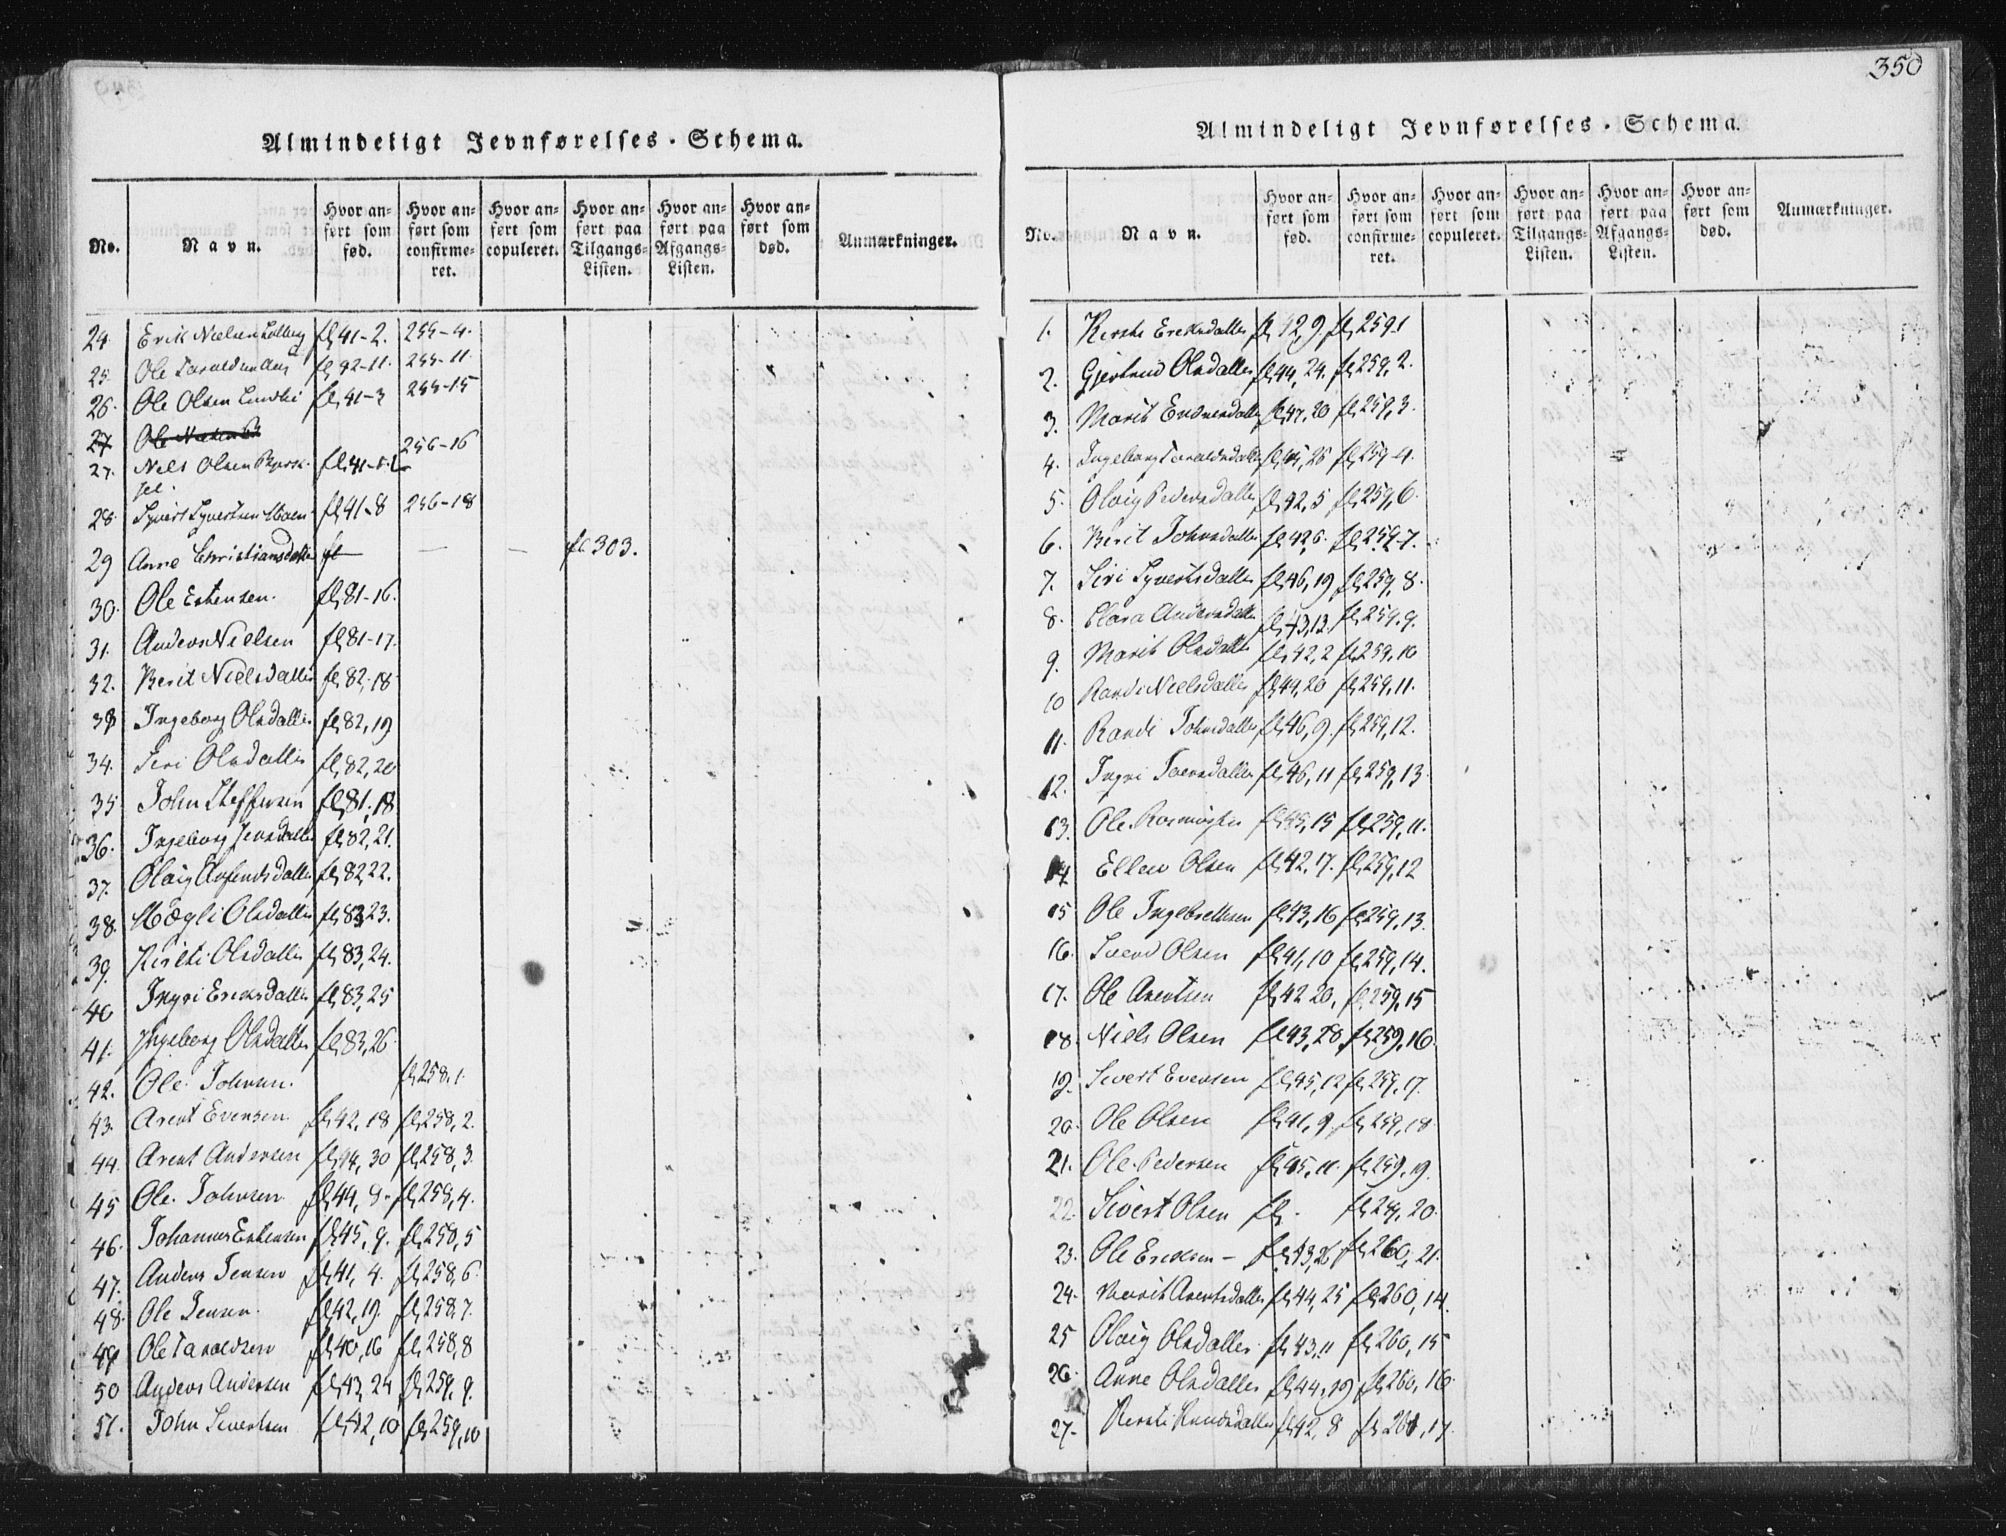 350
Almindeligt Jevnførelses-Schema.
No. Navn. Hvor anført som fød. Hvor anført som confirmeret. Hvor anført som copuleret. Hvor anført paa Tilgangs-Listen. Hvor anført paa Afgangs-Listen. Hvor anført som død. Anmærkninger.
24. Erik Nielsen 41-2. 255-4.
25. Ole 42-11. 255-11.
26. Ole Olsen 41-3 255-15
27
27. Nels Olsen 256-16
28. Syvert Syvertsen Moen 41-8 256-18
29 Anne Christiansdatter fl 303.
30. Ole Estensen. fl 81-16.
31. Anders Nielsen fl 81-17.
32. Berit Nielsdatter fl 82-18
33 Ingeborg Olsdatter fl 82,19
34. Siri Olsdatter fl 82,20
35 John Steffensen fl 81,18
36. Ingeborg Jensdatter fl 82,21.
37. Olaig Arfindsdatter fl 82,22.
38. Mægli Olsdatter fl 83,23.
39. Kirsti Olsdatter fl 83,24.
40 Ingri Ericksdatter fl 83,25
41. Ingeborg Olsdatter fl 83,26
42. Ole Johnsen. fl 258.1.
43. Arent Evensen fl 42,18 fl 258,2.
44. Arent Andersen fl 44,30 fl 258,3.
45 Ole Johnsen fl 44,8- fl 258,4.
46. Johannes Estensen fl 45,9. fl 258,5
47. Anders Jensen fl 41,4. fl 258,6
48. Ole Jensen. fl 42,19. fl 258,7.
49 Ole Taraldsen fl 40,16 fl 258,8
50 Anders Andersen fl 43,24 fl 259,9.
51. John Sivertsen fl 42,10 fl 259,10
Almindeligt Jevnførelses-Schema.
No. Navn. Hvor anført som fød. Hvor anført som confirmeret. Hvor anført som copuleret. Hvor anført paa Tilgangs-Listen. Hvor anført paa Afgangs-Listen. Hvor anført som død. Anmærkninger.
1. Kirsti Ericksdatter fl 42,9 fl 259.1
2. Gjertrud Olsdatter fl 44,24. fl 259,2.
3. Marit fl 47,20 fl 259,3.
4. Ingeborg Taraldsdatter fl 45,26 fl 259-4.
5. Olaig Pedersdatter fl 42,5 fl 259,6.
6. Berit Johnsdatter fl 42,6. fl 259-7.
7. Siri Syvertsdatter fl 46,19 fl 259,8.
8. Clara Andersdatter fl 43,13. fl 259,9.
9. Marit Olsdatter fl 42,2 fl 259,10
10 Randi Nielsdatter fl 44,20 fl 259,11.
11. Randi Johnsdatter fl 46,9. fl 259,12.
12. Ingri fl 46,11 fl 259,13.
13. Ole fl 45,15 fl 259,11.
14 Ellev Olsen fl 42,17. fl 259,12
15 Ole Ingebretsen fl 43,16 fl 259,13.
16. Svend Olsen fl 41,10 fl 259,14.
17. Ole Arentsen fl 42 20, fl 259,15
18. Niels Olsen fl 43,28 fl 259,16.
19. Sivert Evensen fl 45,12 fl 259,17.
20. Ole Olsen fl 41,9, fl 259,18
21. Ole Pedersen fl 45,11. fl 259,19.
22. Sivert Olsen fl. fl 259,20.
23. Ole Ericksen - fl 43,26 fl 260,21.
24. Marit Arentsdatter fl 44,25 fl 260,14.
25 Olaig Olsdatter fl 43,11 fl 260,15
26. Anne Olsdatter fl 44,19 fl 260,16.
27. Kirsti Knudsdatter fl 42,8 fl 260,17.